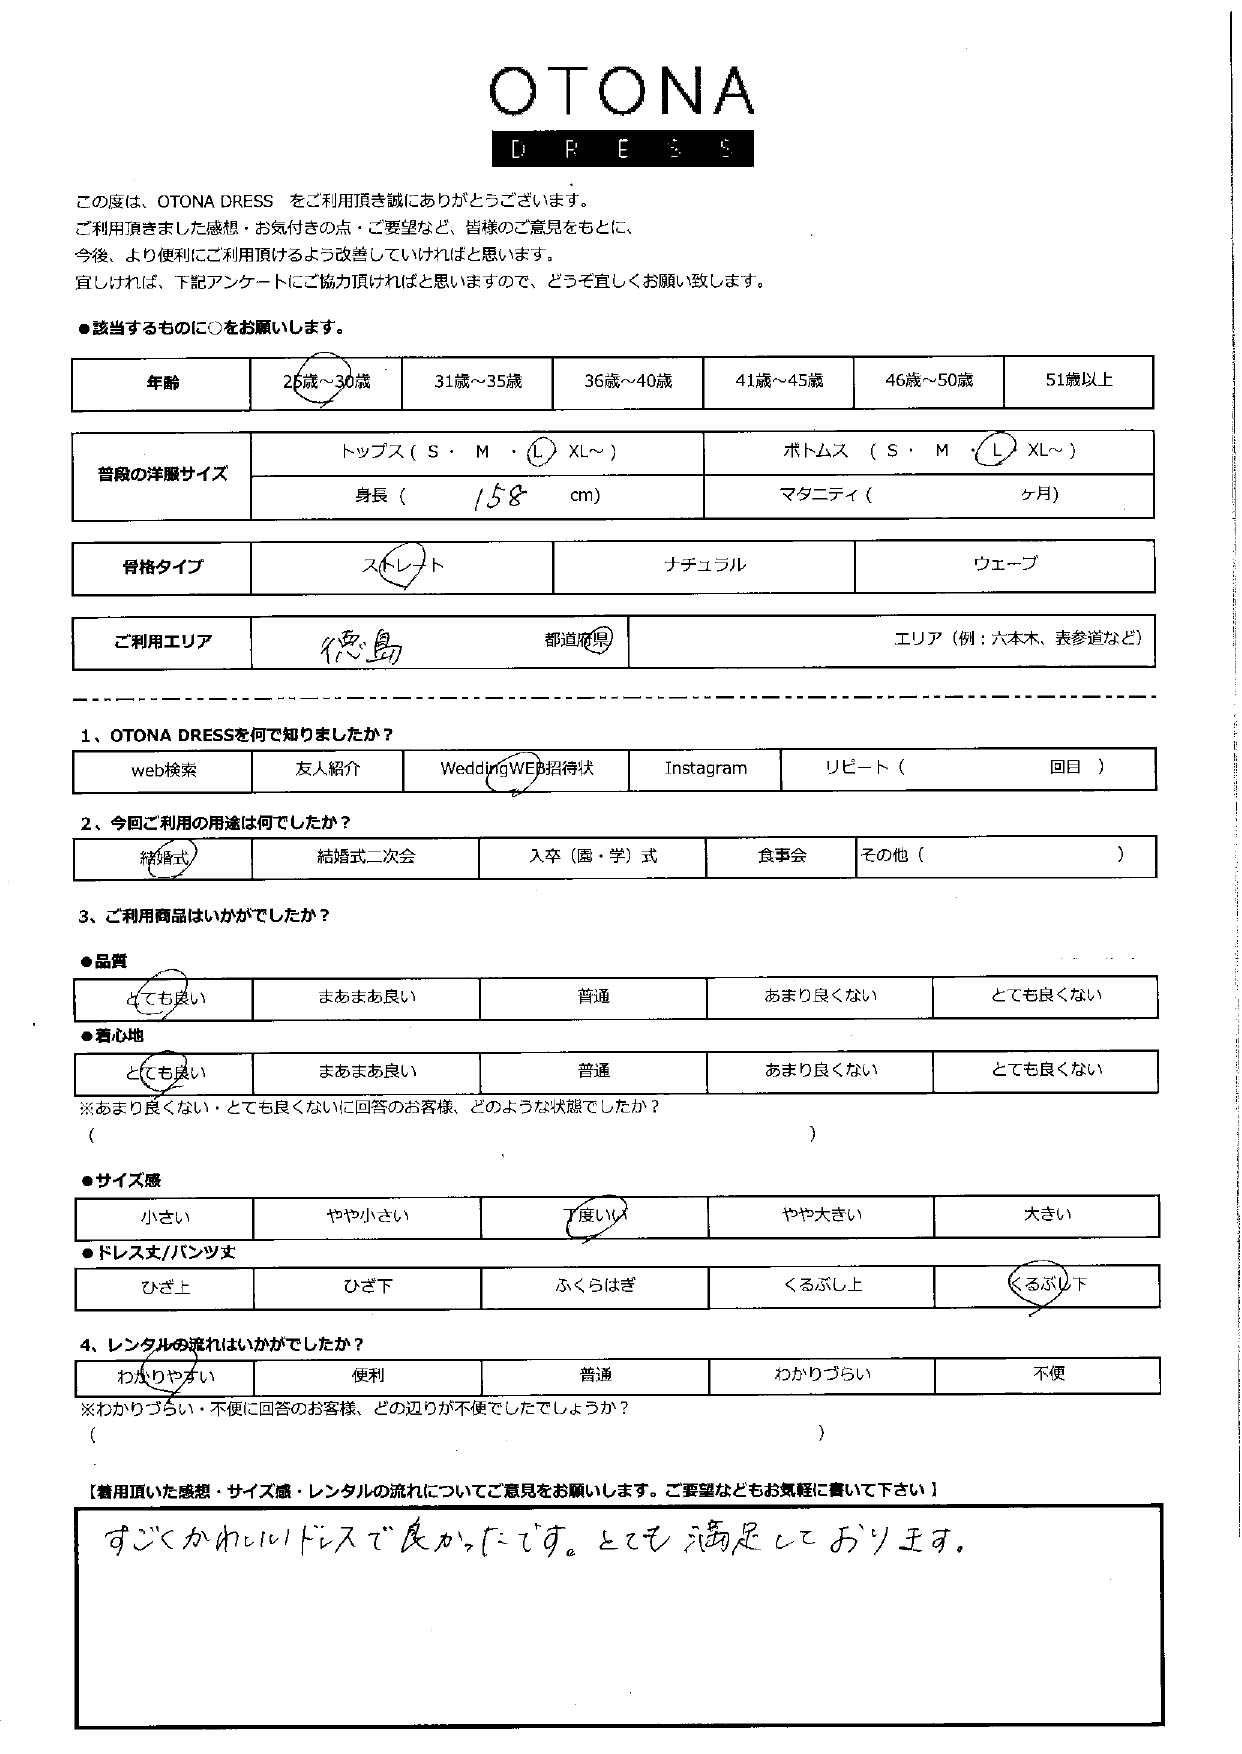 OTONA
DRESS
この度は、OTONA DRESS　をご利用頂き誠にありがとうございます。
ご利用頂きました感想・お気付きの点・ご要望など、皆様のご意見をもとに、
今後、より便利にご利用頂けるよう改善していければと思います。
宜しければ、下記アンケートにご協力頂ければと思いますので、どうぞ宜しくお願い致します。
●該当するものに○をお願いします。
年齢 25歳～30歳 31歳～35歳 36歳～40歳 41歳～45歳 46歳～50歳 51歳以上
普段の洋服サイズ トップス ( S ・ M ・ L ・ XL～ ) ボトムス ( S ・ M ・ L ・ XL～ )
身長 ( 158 cm) マタニティ ( ヶ月)
骨格タイプ ストレート ナチュラル ウェーブ
ご利用エリア 徳島 都道府県 エリア（例：六本木、表参道など）
1、OTONA DRESSを何で知りましたか？
web検索 友人紹介 WeddingWEB招待状 Instagram リピート（ 回目 ）
2、今回ご利用の用途は何でしたか？
結婚式 結婚式二次会 入卒（園・学）式 食事会 その他（ ）
3、ご利用商品はいかがでしたか？
●品質
とても良い まあまあ良い 普通 あまり良くない とても良くない
●着心地
とても良い まあまあ良い 普通 あまり良くない とても良くない
※あまり良くない・とても良くないに回答のお客様、どのような状態でしたか？
( )
●サイズ感
小さい やや小さい 丁度いい やや大きい 大きい
●ドレス丈/パンツ丈
ひざ上 ひざ下 ふくらはぎ くるぶし上 くるぶし下
4、レンタルの流れはいかがでしたか？
わかりやすい 便利 普通 わかりづらい 不便
※わかりづらい・不便に回答のお客様、どの辺りが不便でしたでしょうか？
( )
【着用頂いた感想・サイズ感・レンタルの流れについてご意見をお願いします。ご要望などもお気軽に書いて下さい】
すごくかわいいドレスで良かったです。とても満足しております。